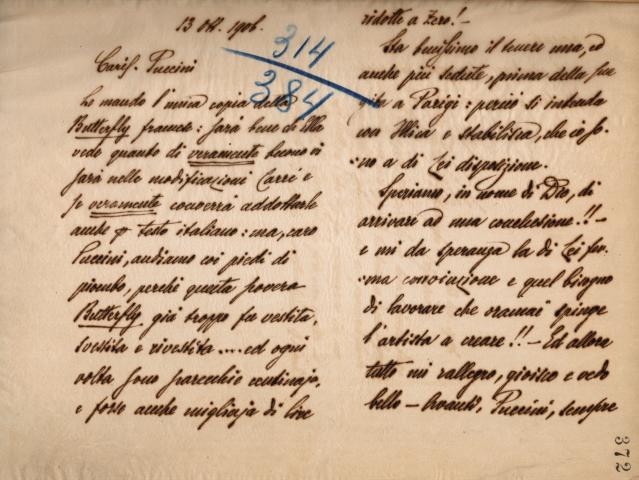 13 Ott. 1906.
314
384
Cariss. Puccini
Le mando l'unica copia della
Butterfly francese: sarà bene di Ella
vede quanto di veramente buono vi
sarà nelle modificazioni Carré e
se veramente converrà addottarle
anche pel testo italiano: ma, caro
Puccini, andiamo coi piedi di
piombo, perchè questa povera
Butterfly già troppo fu vestita,
svestita e rivestita .... ed ogni
volta sono parecchie centinaja,
e forse anche migliaja di lire
ridotte a zero! –
Sta benissimo il tenere una, ed
anche più sedute, prima della sua
gita a Parigi: perciò si intenda
con Illica e stabilisca, che io so-
no a di Lei disposizione.
Speriamo, in nome di Dio, di
arrivare ad una conclusione!! –
e mi dà speranza la di Lei fer-
ma convinzione e quel bisogno
di lavorare che oramai spinge
l'artista a creare!! – Ed allora
tutto mi rallegro, gioisco e vedo
bello – Avanti, Puccini, sempre
372